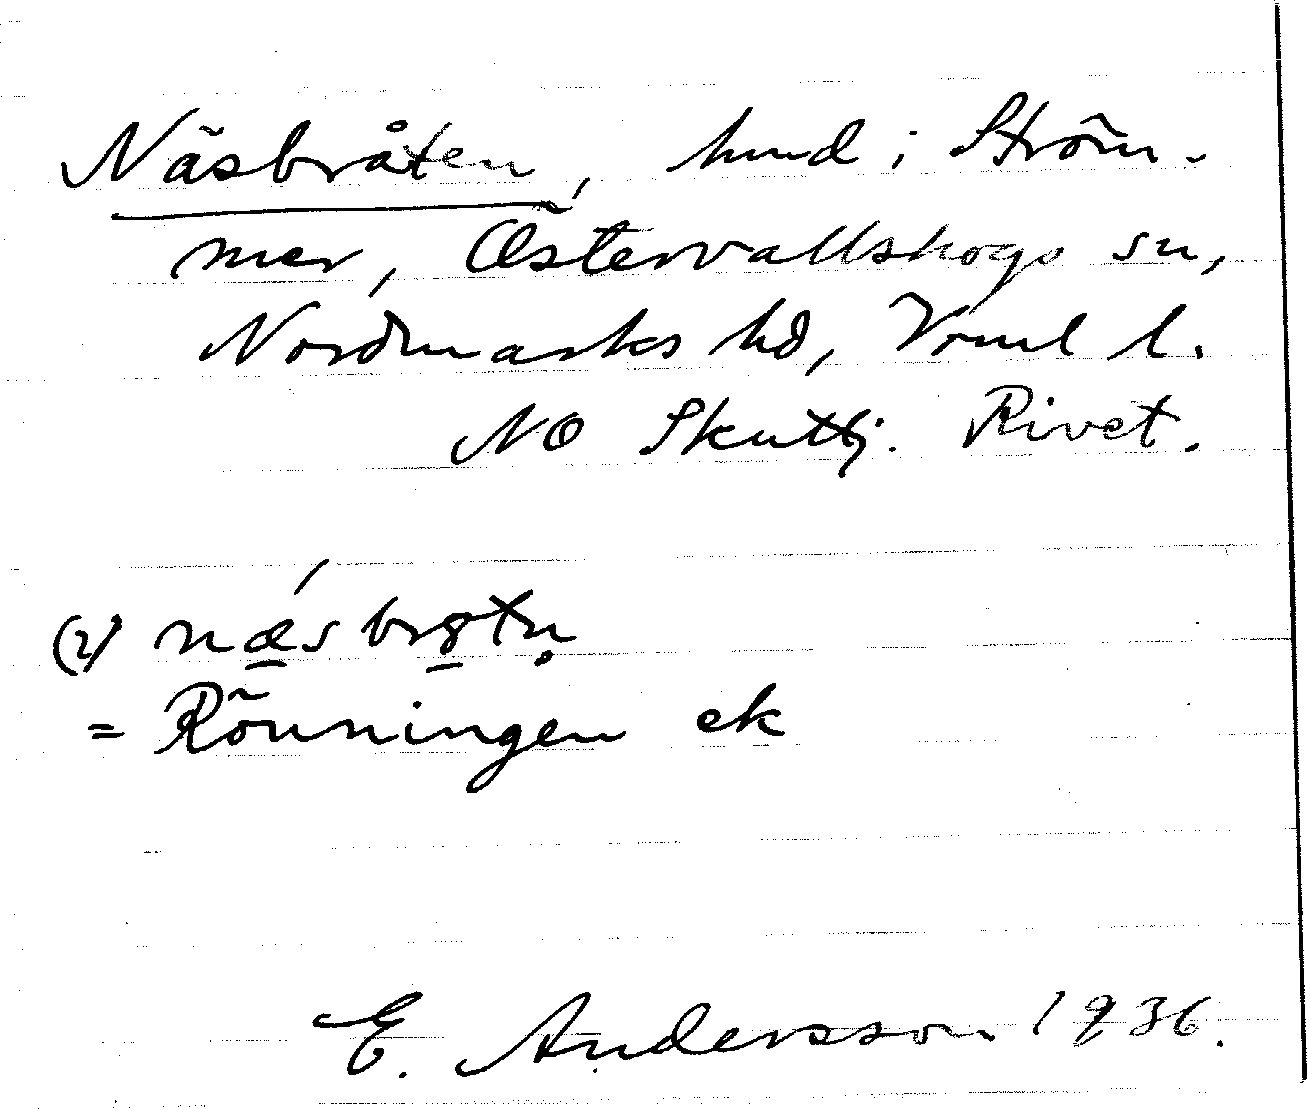 Näsbråten, hmd i Ström-
mer, Östervallskogs sn,
Nordmarks hd, Vrml l.
NO Skuttj. Rivet.
(2) næsbrøtn̥
= Rönningen ek
E. Andersson 1936.